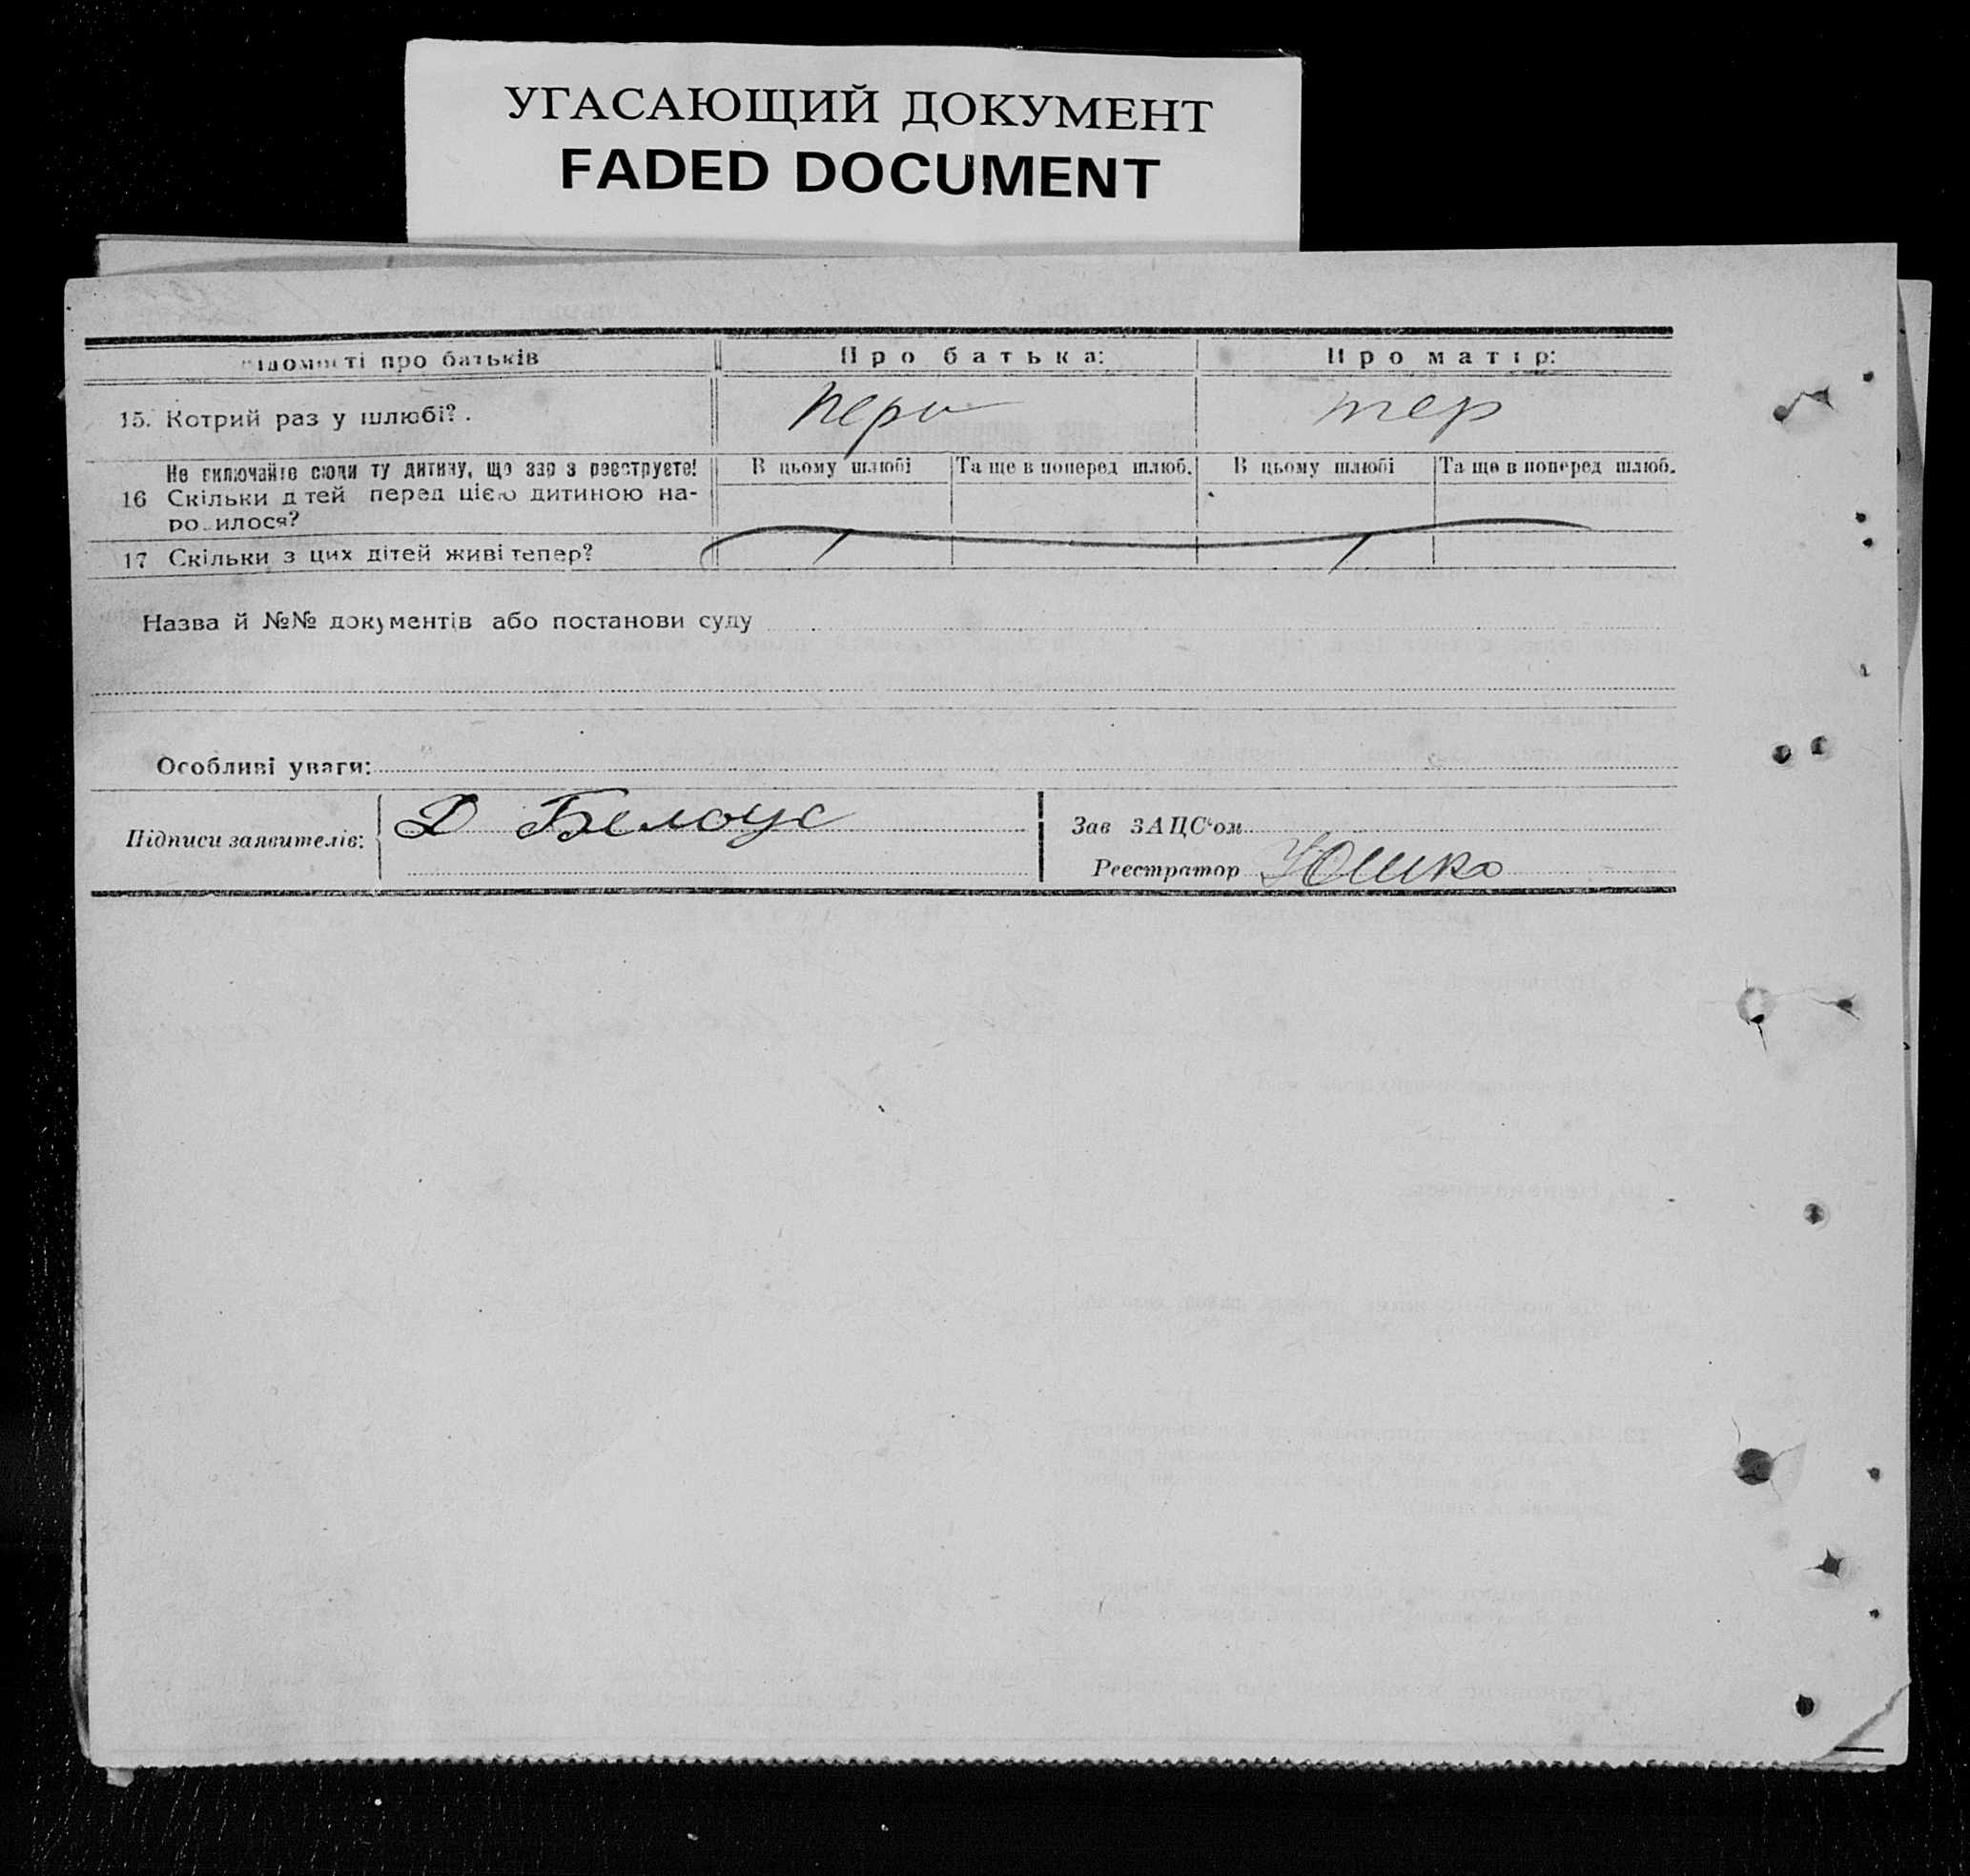 УГАСАЮЩИЙ ДОКУМЕНТ
FADED DOCUMENT
ідомості про батьків
Про батька:
Про матір:
15. Котрий раз у шлюбі?.
перв
пер
Не включайте сюди ту дитину, що зар з реєструєте!
В цьому шлюбі
Та ще в поперед шлюб.
В цьому шлюбі
Та ще в поперед шлюб.
16 Скільки д тей перед цією дитиною на-
ро илося?
17 Скільки з цих дітей живі тепер?
Назва й №№ документів або постанови суду
Особливі уваги:
Підписи заявителів:
Д Белоус
Зав ЗАЦС'ом
Реєстратор Юшко